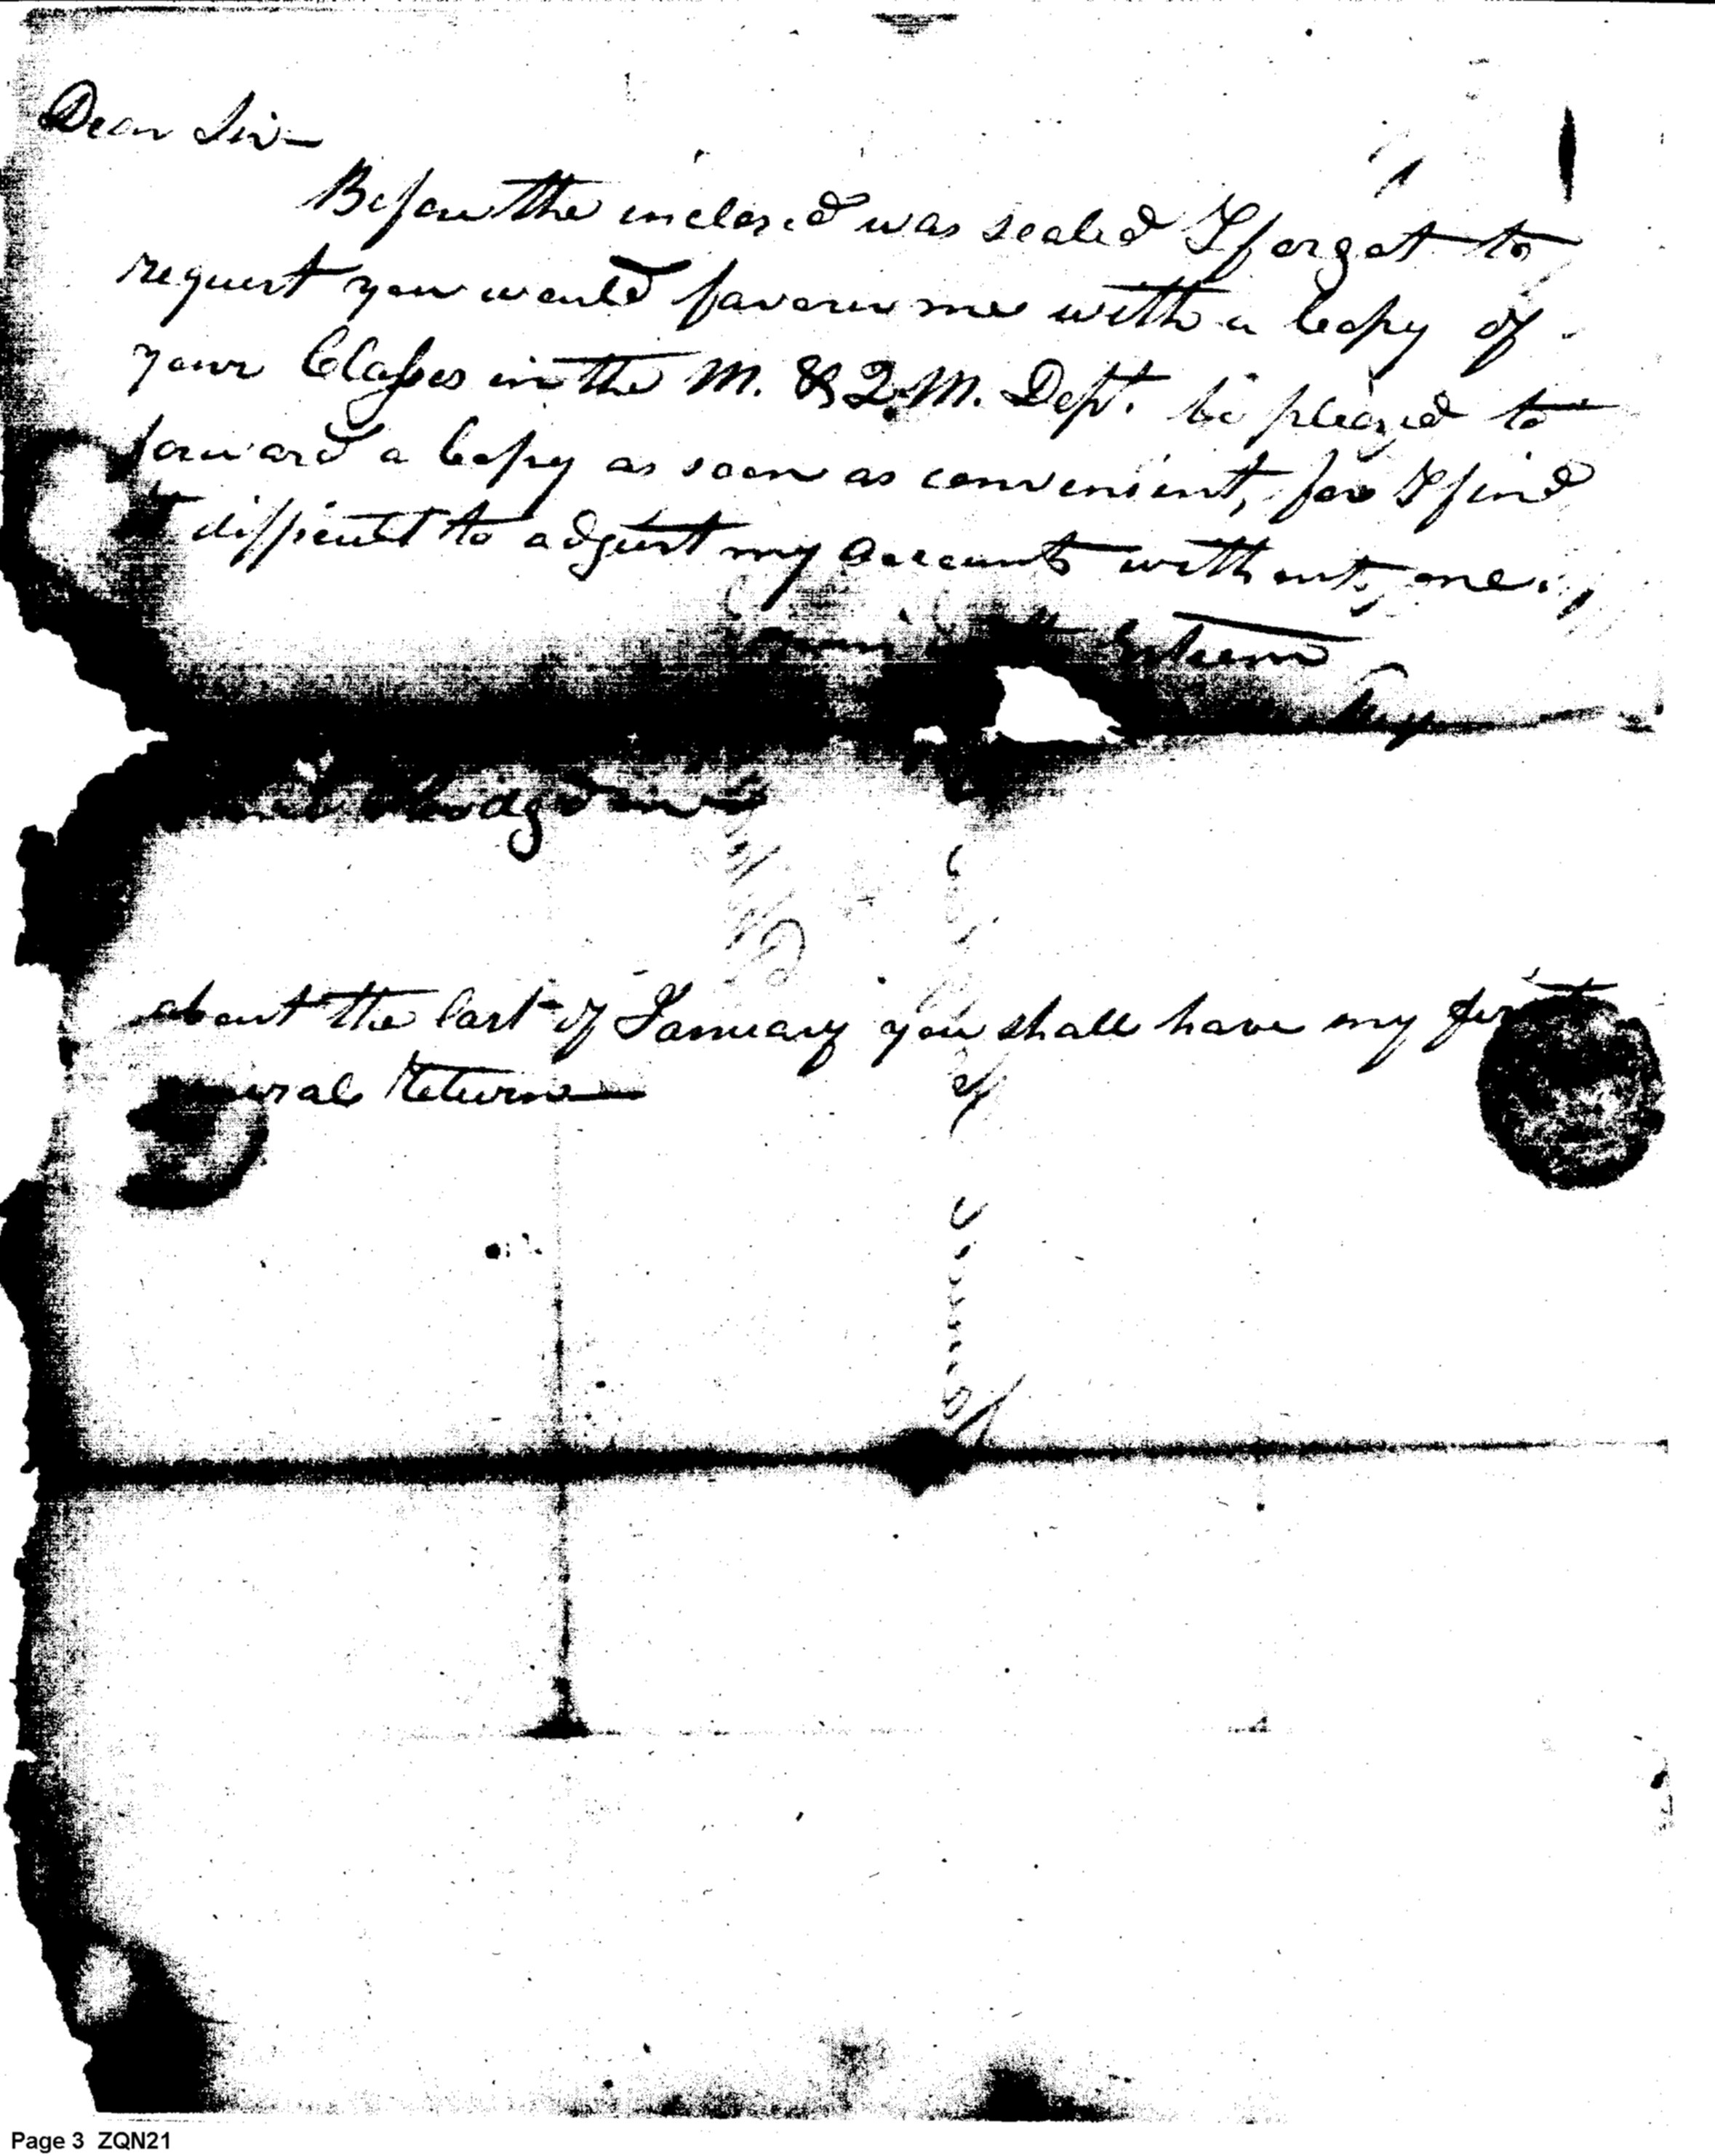 Dear Sir—
Before the inclosed was sealed I forgot to
request you would favour me with a Copy of
your Classes in the M. & Q.M. Dept. be pleased to
forward a Copy as soon as convenient, for I find
it difficult to adjust my Accounts without, one.
Esteem
Hodgdon
about the last of January you shall have my first
Returns—
Page 3 ZQN21